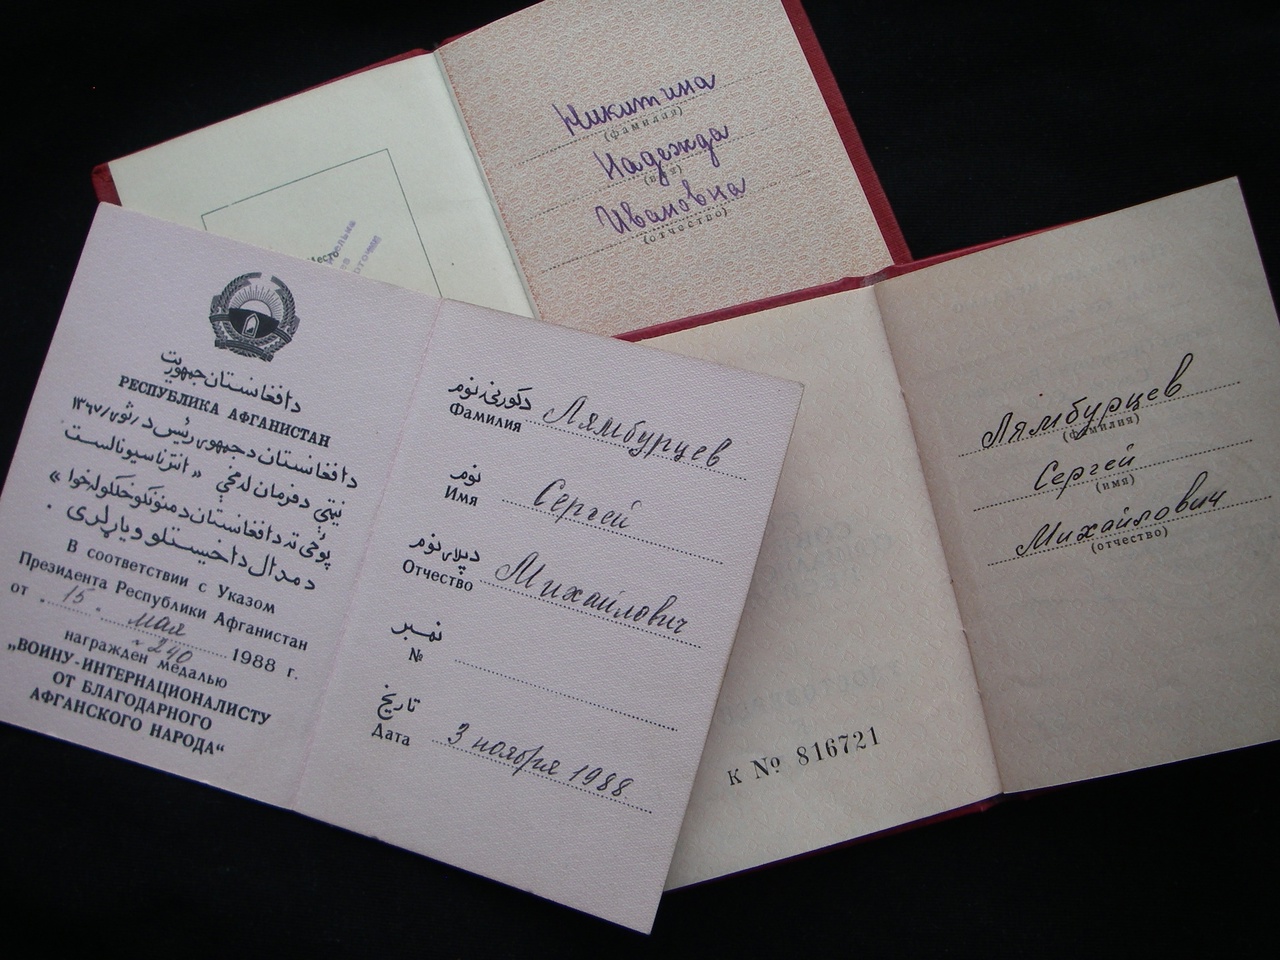 Никитина
(фамилия)
Надежда
(имя)
Ивановна
(отчество)
Место
د افغانستان جمهوریت
РЕСПУБЛИКА АФГАНИСТАН
د افغانستان د جمهوری رئیس د ثور ۱۳۶۷/
نیټې د فرمان له مخې « انترناسیونالیست
پوځي ته د افغانستان د مننونکو خلکو له خوا »
د مدال د اخیستلو ویاړ لری .
В соответствии с Указом
Президента Республики Афганистан
от „ 15 „ мая 1988 г.
№ 240
награжден медалью
„ВОИНУ-ИНТЕРНАЦИОНАЛИСТУ
ОТ БЛАГОДАРНОГО
АФГАНСКОГО НАРОДА“
د کورنۍ نوم
Фамилия Лямбурцев
نوم
Имя Сергей
د پلار نوم
Отчество Михайлович
نمبر
№
تاریخ
Дата 3 ноября 1988
К № 816721
Лямбурцев
(фамилия)
Сергей
(имя)
Михайлович
(отчество)